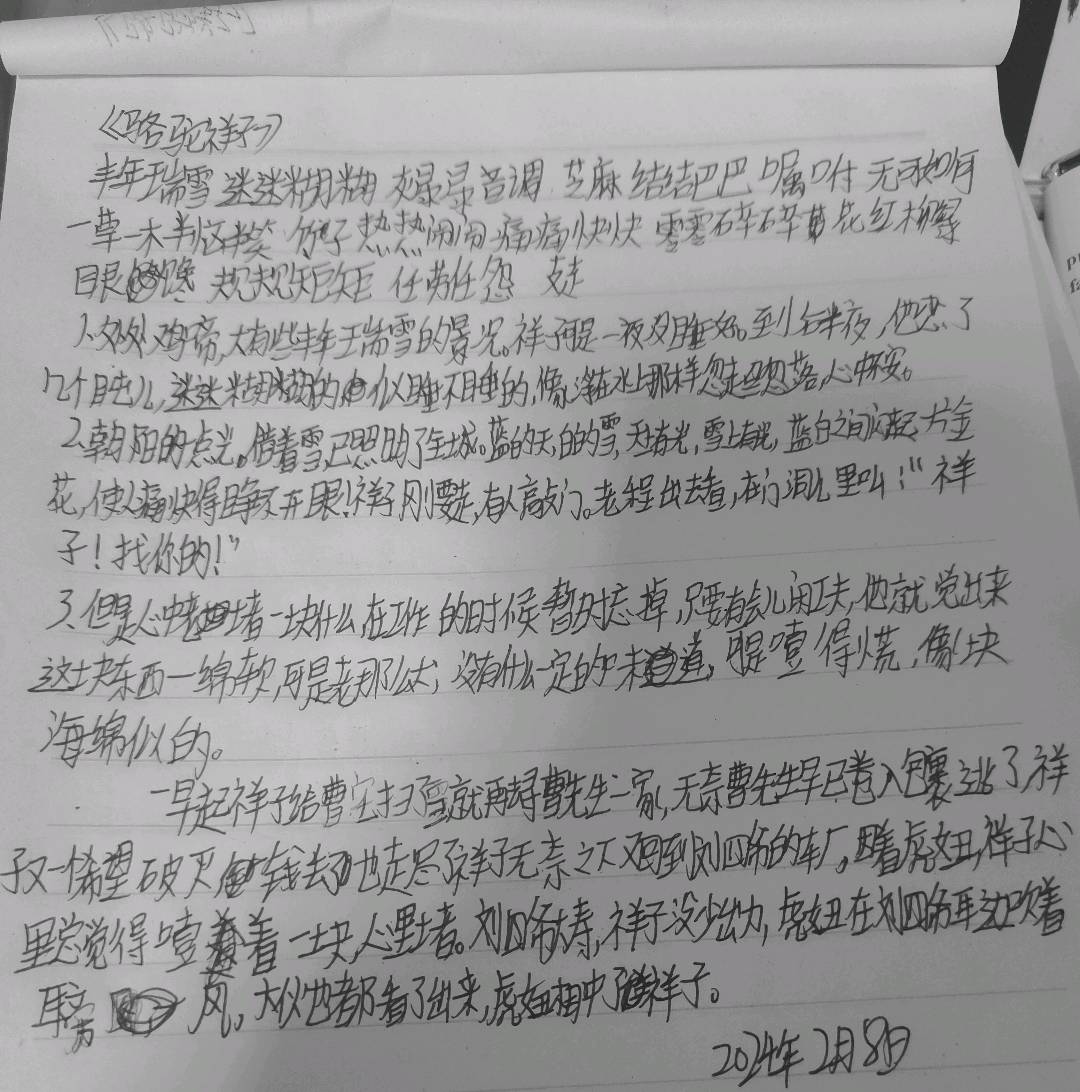 《骆驼祥子》
丰年瑞雪 迷迷糊糊 音调 芝麻 结结巴巴 嘱咐 无可如何
一草一木 半恼半笑 份子 热热闹闹 痛痛快快 零零碎碎 花红柳绿
眼馋 规规矩矩 任劳任怨
1.处处鸡啼,大有些丰年瑞雪的景况。祥子可是一夜没睡好。到后半夜,他忍了
几个盹儿,迷迷糊糊的似睡不睡的,像浮在水上那样忽起忽落,心中不安。
2.朝阳的点光。借着雪已照明了全城。蓝的天,白的雪,天上有光,雪上有光,蓝白之间闪起一片金
花,使人痛快得睁不开眼!祥子刚要走,有人敲门。老程出去看,在门洞儿里叫!“祥
子!找你的!”
3.但是心中老堵着一块什么,在工作的时候暂时忘掉,只要有会儿闲工夫,他就觉出来
这块东西—绵软,可是老那么大;没有什么一定的味道,可是噎得慌,像块
海绵似的。
一早起祥子给曹宅扫了雪就再寻曹先生一家,无奈曹先生早已卷入包裹逃了,祥
子又一希望破灭 钱去了也走尽了祥子无奈之下又回到刘四爷的车厂,因着虎妞,祥子心
里总觉得噎着一块,心里堵。刘四爷大寿,祥子没少出力,虎妞在刘四爷耳边吹着
耳旁风,大伙也都看了出来,虎妞相中了祥子。
2024年2月8日